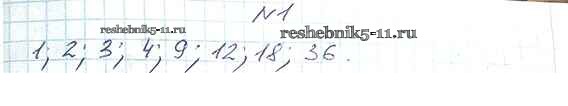 №1
reshebnik5-11.ru
reshebnik5-11.ru
1; 2; 3; 4; 9; 12; 18; 36.